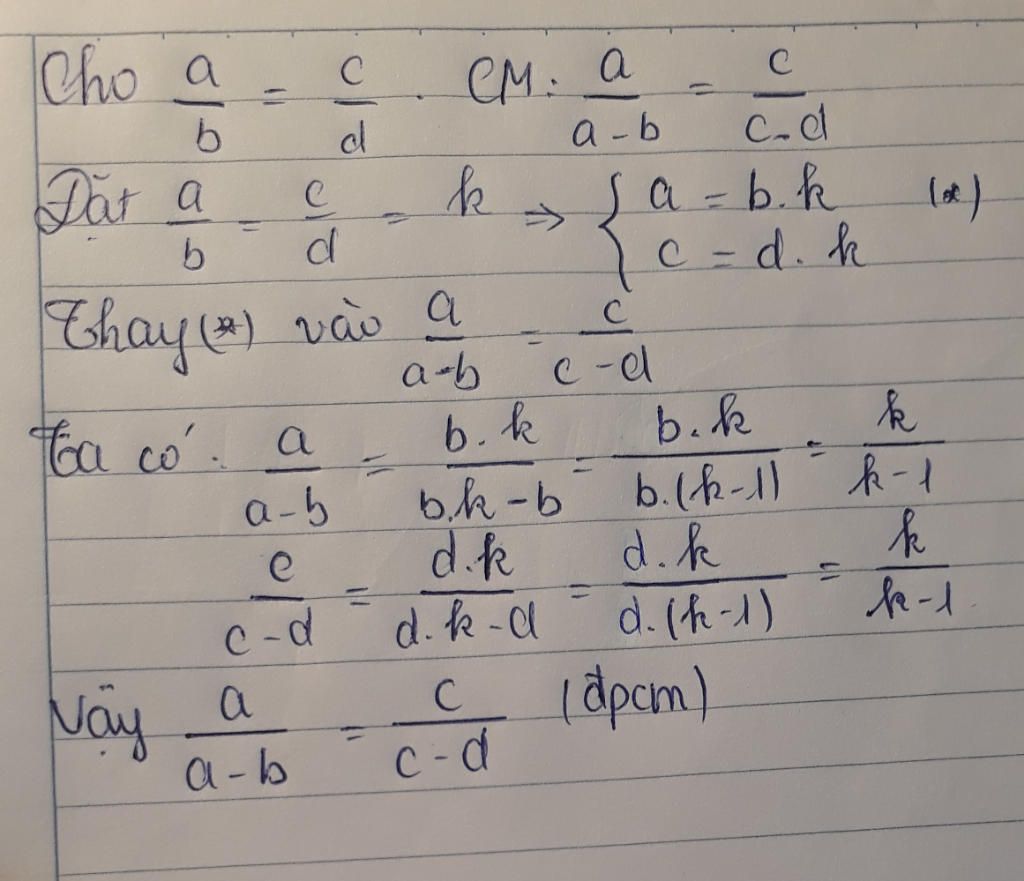 Cho a/b = c/d . CM: a/(a-b) = c/(c-d)
Đặt a/b = c/d = k => { a = b.k (*) c = d.k
Thay (*) vào a/(a-b) = c/(c-d)
Ta có: a/(a-b) = b.k/(b.k-b) = b.k/(b.(k-1)) = k/(k-1)
c/(c-d) = d.k/(d.k-d) = d.k/(d.(k-1)) = k/(k-1).
Vậy a/(a-b) = c/(c-d) (đpcm)